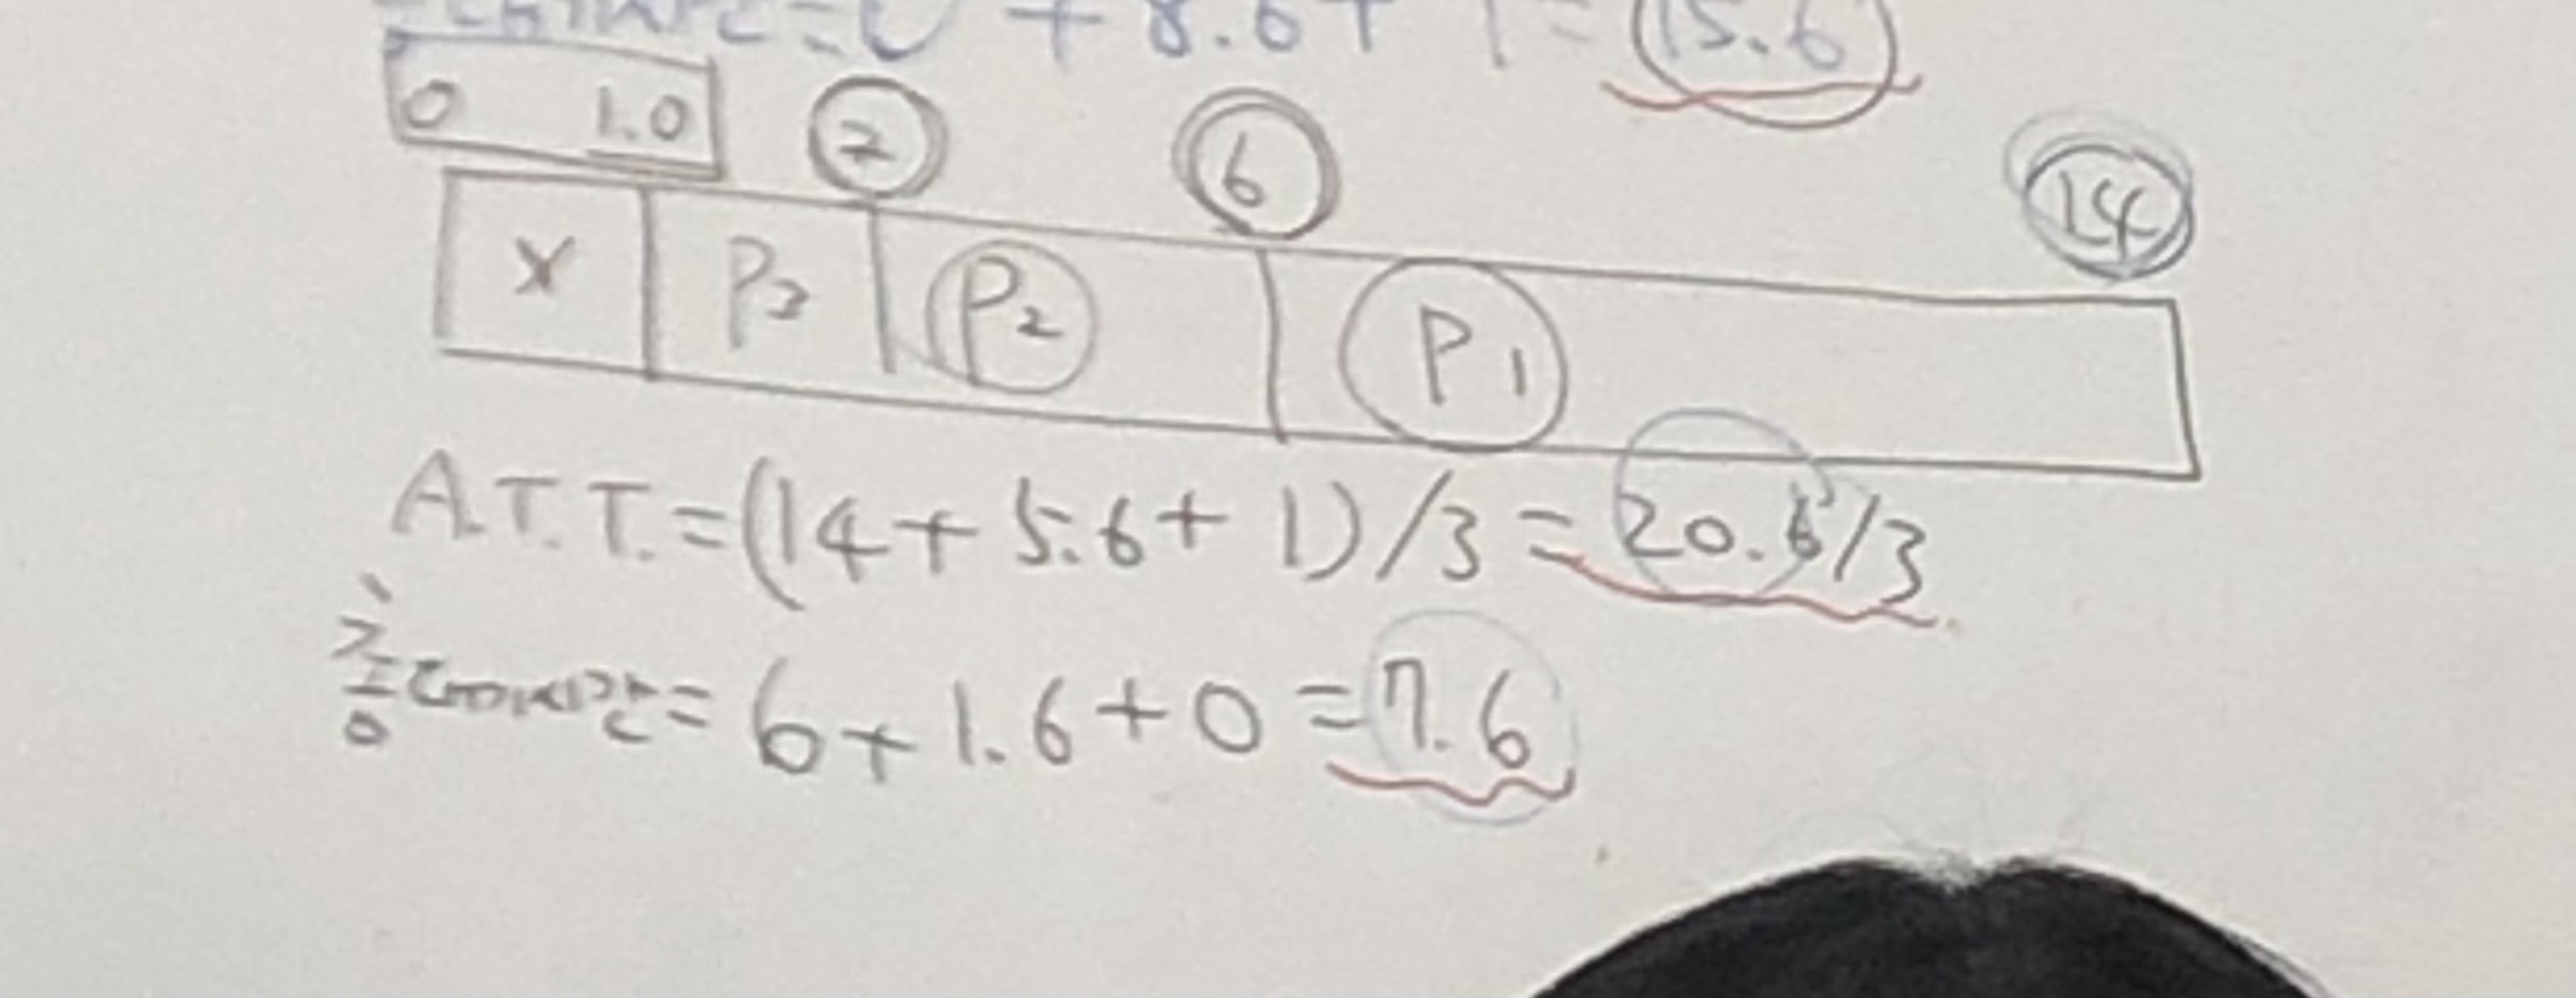 총대기시간=6 + 8.6 + 1 = 15.6
0 1.0 2 6 14
X P3 P2 P1
A.T.T.=(14+5.6+1)/3=20.6/3
총대기시간=6+1.6+0=7.6